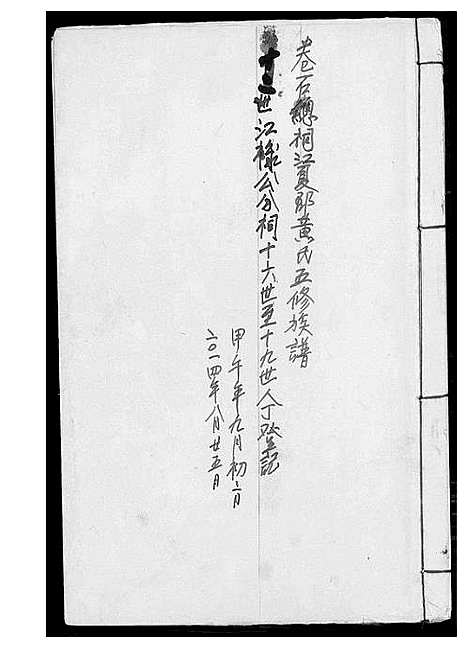 卷石總祠江夏郡黄氏五修族譜
十三世江樣公分祠十六世至十九世人丁登記
甲午年九月初六日
二〇一四年八月廿五日